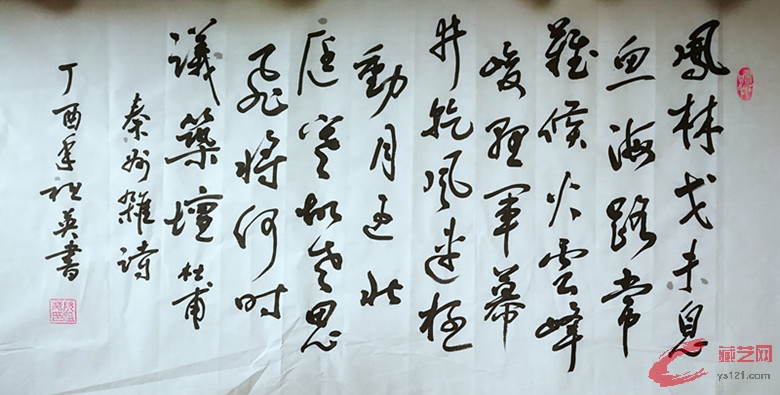 鳳林戈未息
魚海路常
難候火雲峰
峻懸軍幕
井乾風連極
動月過北
庭寒故老思
飛將何時
議築壇 杜甫
秦州雜詩
丁酉 祉英書
藏艺网
ys121.com